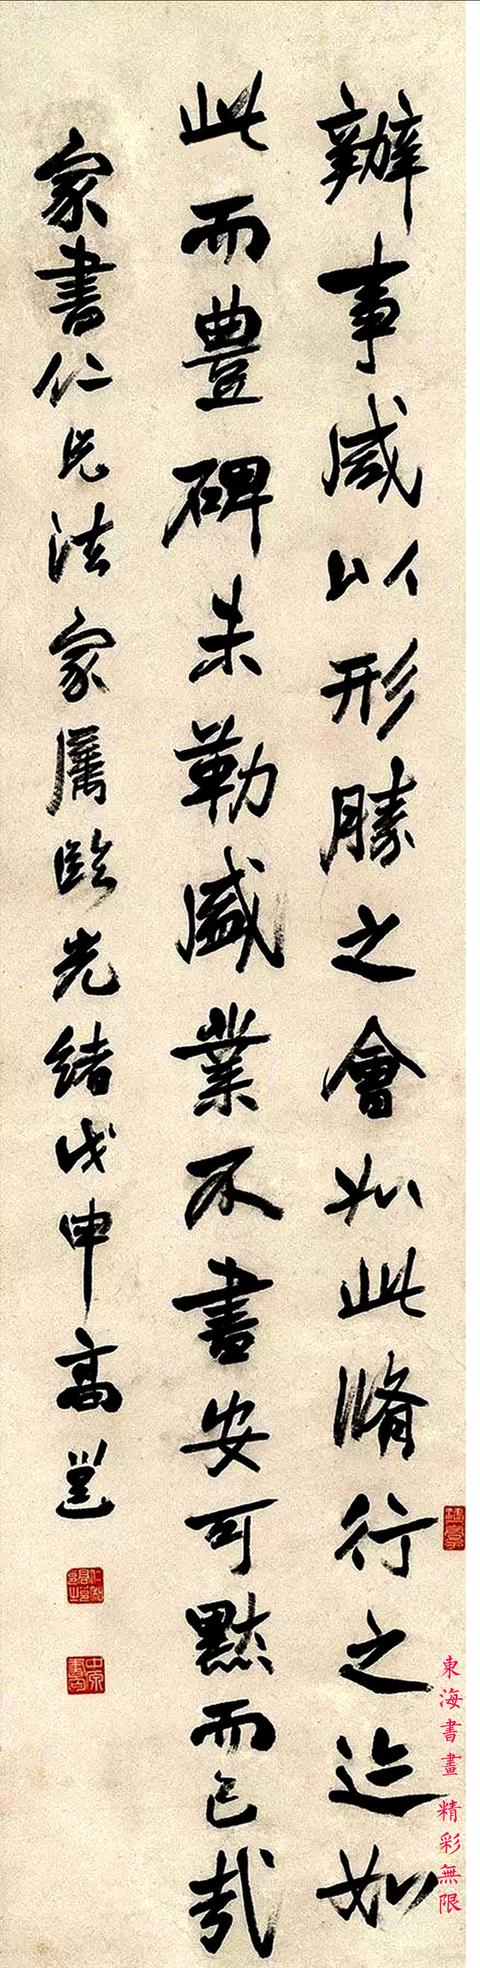 辦事咸以形勝之會如此脩行之迹如
此而豊碑未勒盛業不書安可默而已哉
家書仁兄法家屬臨光緒戊申高邕
東海書畫 精彩無限